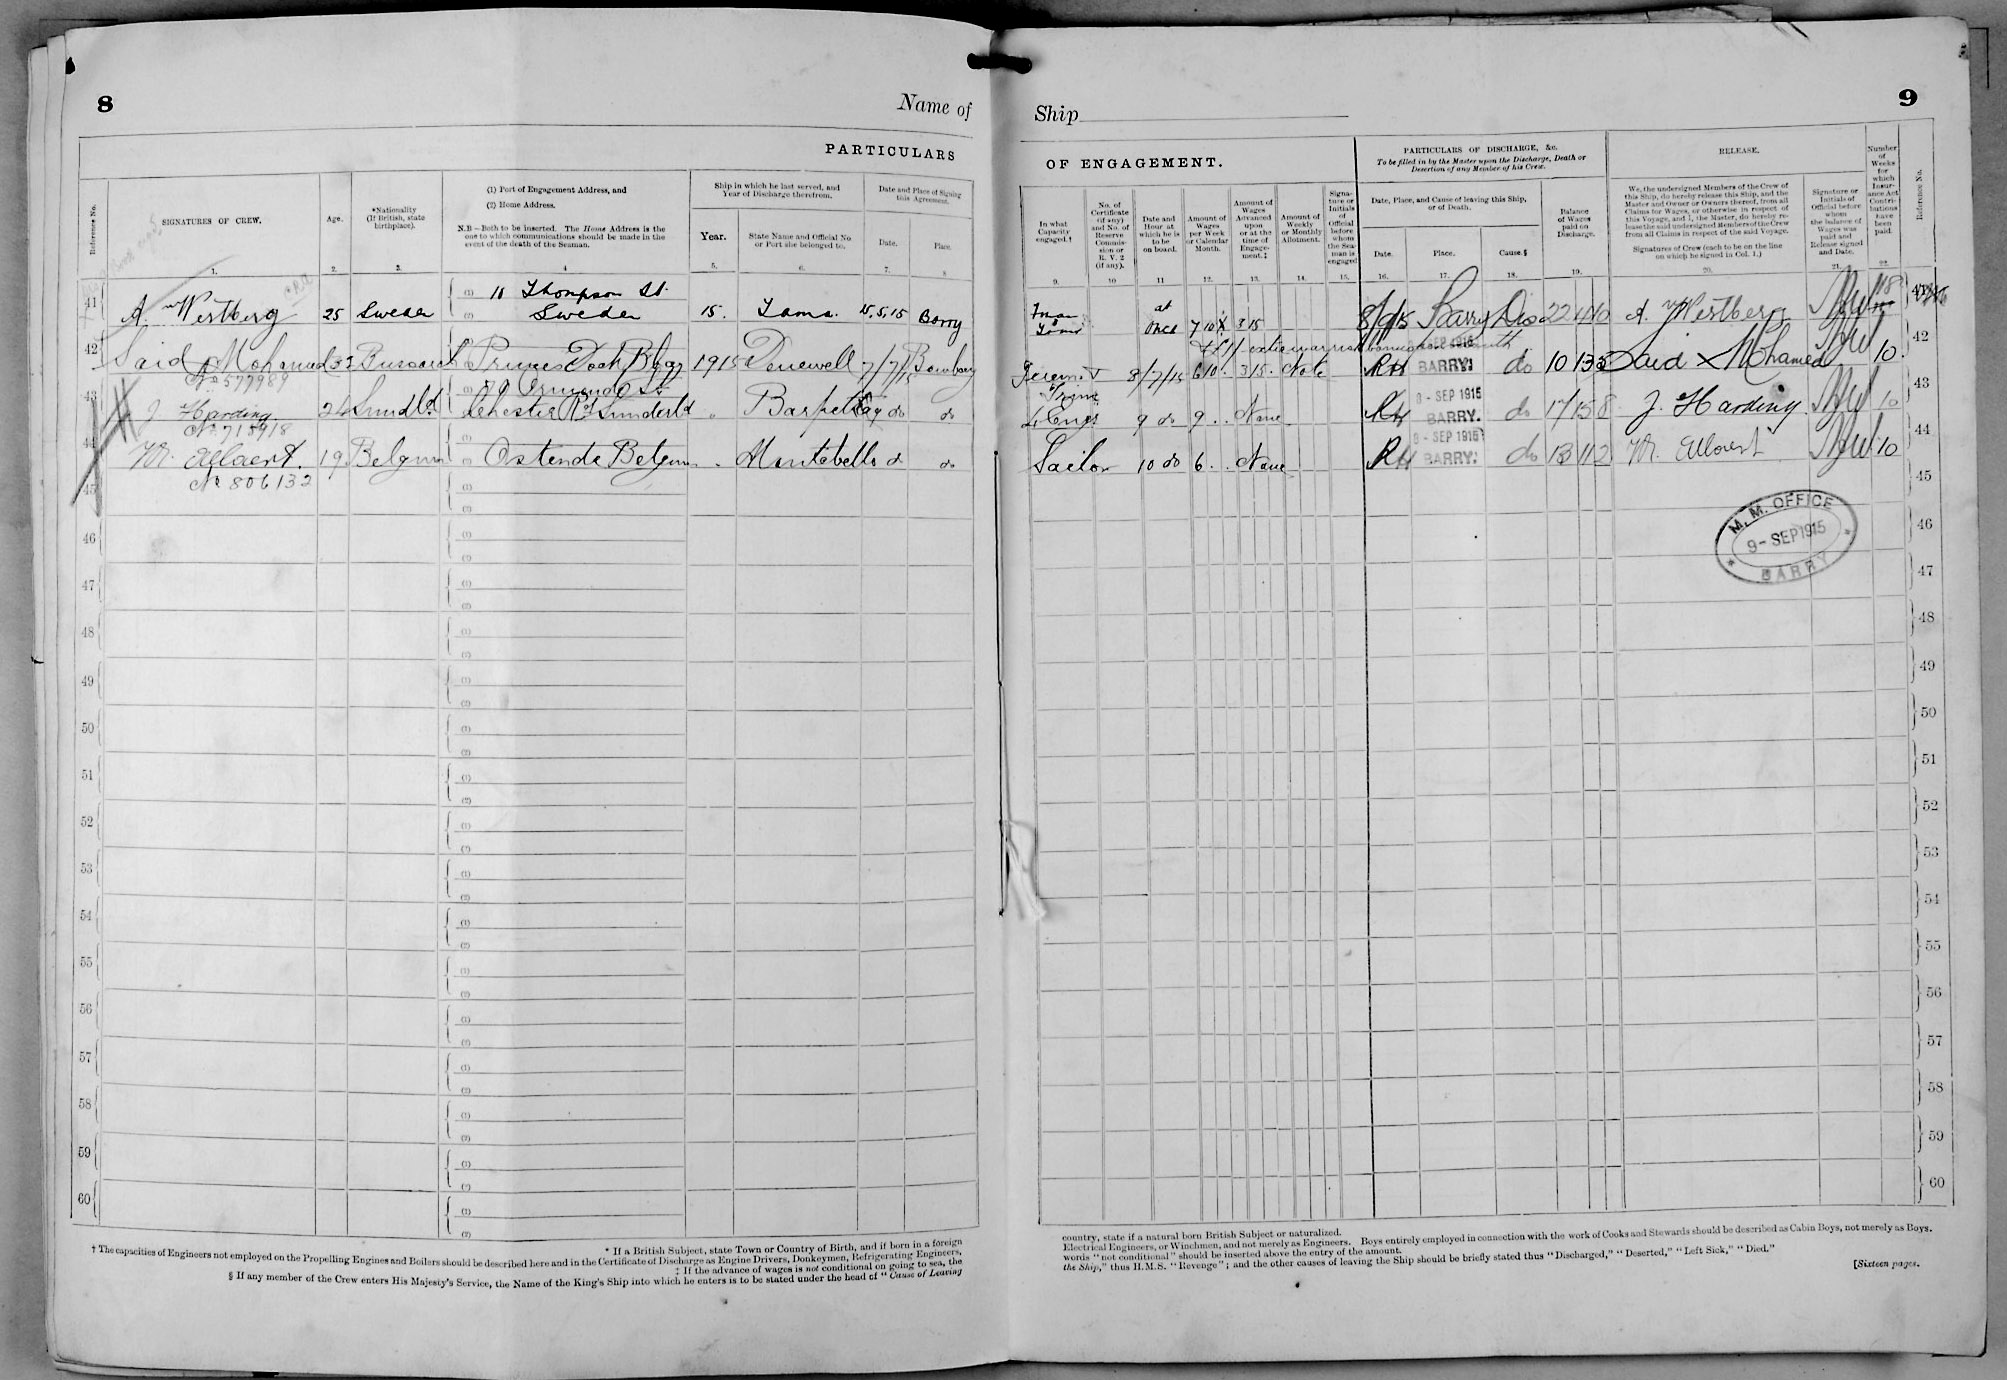 8
Name of
Ship
9
PARTICULARS
OF ENGAGEMENT.
PARTICULARS OF DISCHARGE, &c.
To be filled in by the Master upon the Discharge, Death or
Desertion of any Member of his Crew.
RELEASE.
Number of Weeks for which Insurance Act Contributions have been paid.
Reference No.
SIGNATURES OF CREW.
Age.
*Nationality (If British, state birthplace).
(1) Port of Engagement Address, and
(2) Home Address.
N.B—Both to be inserted. The Home Address is the
one to which communications should be made in the
event of the death of the Seaman.
Ship in which he last served, and
Year of Discharge therefrom.
Year.
State Name and Official No
or Port she belonged to.
Date and Place of Signing
this Agreement.
Date.
Place.
In what Capacity engaged.†
No. of Certificate (if any) and No. of Reserve Commission or R. V. 2 (if any).
Date and Hour at which he is to be on board.
Amount of Wages per Week or Calendar Month.
Amount of Wages Advanced upon or at the time of Engagement.‡
Amount of Weekly or Monthly Allotment.
Signature or Initials of Official before whom the Seaman is engaged
Date, Place, and Cause of leaving this Ship,
or of Death.
Date.
Place.
Cause.§
Balance of Wages paid on Discharge.
We, the undersigned Members of the Crew of
this Ship, do hereby release this Ship, and the
Master and Owner or Owners thereof, from all
Claims for Wages, or otherwise in respect of
this Voyage, and I, the Master, do hereby release the said undersigned Members of the Crew
from all Claims in respect of the said Voyage.
Signatures of Crew (each to be on the line
on which he signed in Col. 1.)
Signature or Initials of Official before whom the balance of Wages was paid and Release signed and Date.
Reference No.
1. 2. 3. 4 5. 6. 7. 8
9. 10 11 12. 13. 14. 15. 16. 17. 18. 19. 20. 21. 22
41 A Wertberg 25 Sweden (1) 11 Thompson St. (2) Sweden 15. Tama. 15.5.15 Barry
Fman at once 7 10 3 15 8/9/15 Barry Dis 22 A Wertberg 18 41
42 Said Mohamed 32 Princes Dock Bgy 1915 Denewell 7/7/15 Bombay
No 577989
8/7/15 6 10 . 3/15 . Note RH BARRY. do 10 13 Said X Mohamed 10 42
43 J Harding 24 Sundld Ormond St Chester Rd Sunderld Barpeta do do
No 715918
4 Engr 9 do 9 . . None RH 9 - SEP 1915 BARRY. do 17 15 8 J. Harding 10 43
44 M. Allaert. 19 Belgium Ostende Belgium . Montebello do do
No 806132
Sailor 10 do 6 . . None RH 9 - SEP 1915 BARRY. do 13 11 2 M. Allaert 10 44
M. M. OFFICE
9- SEP 1915
* BARRY *
45 45
46 46
47 47
48 48
49 49
50 50
51 51
52 52
53 53
54 54
55 55
56 56
57 57
58 58
59 59
60 60
* If a British Subject, state Town or Country of Birth, and if born in a foreign
country, state if a natural born British Subject or naturalized.
† The capacities of Engineers not employed on the Propelling Engines and Boilers should be described here and in the Certificate of Discharge as Engine Drivers, Donkeymen, Refrigerating Engineers,
Electrical Engineers, or Winchmen, and not merely as Engineers. Boys entirely employed in connection with the work of Cooks and Stewards should be described as Cabin Boys, not merely as Boys.
‡ If the advance of wages is not conditional on going to sea, the
words "not conditional" should be inserted above the entry of the amount.
§ If any member of the Crew enters His Majesty's Service, the Name of the King's Ship into which he enters is to be stated under the head of "Cause of Leaving
the Ship," thus H.M.S. "Revenge"; and the other causes of leaving the Ship should be briefly stated thus "Discharged," "Deserted," "Left Sick," "Died."
[Sixteen pages.